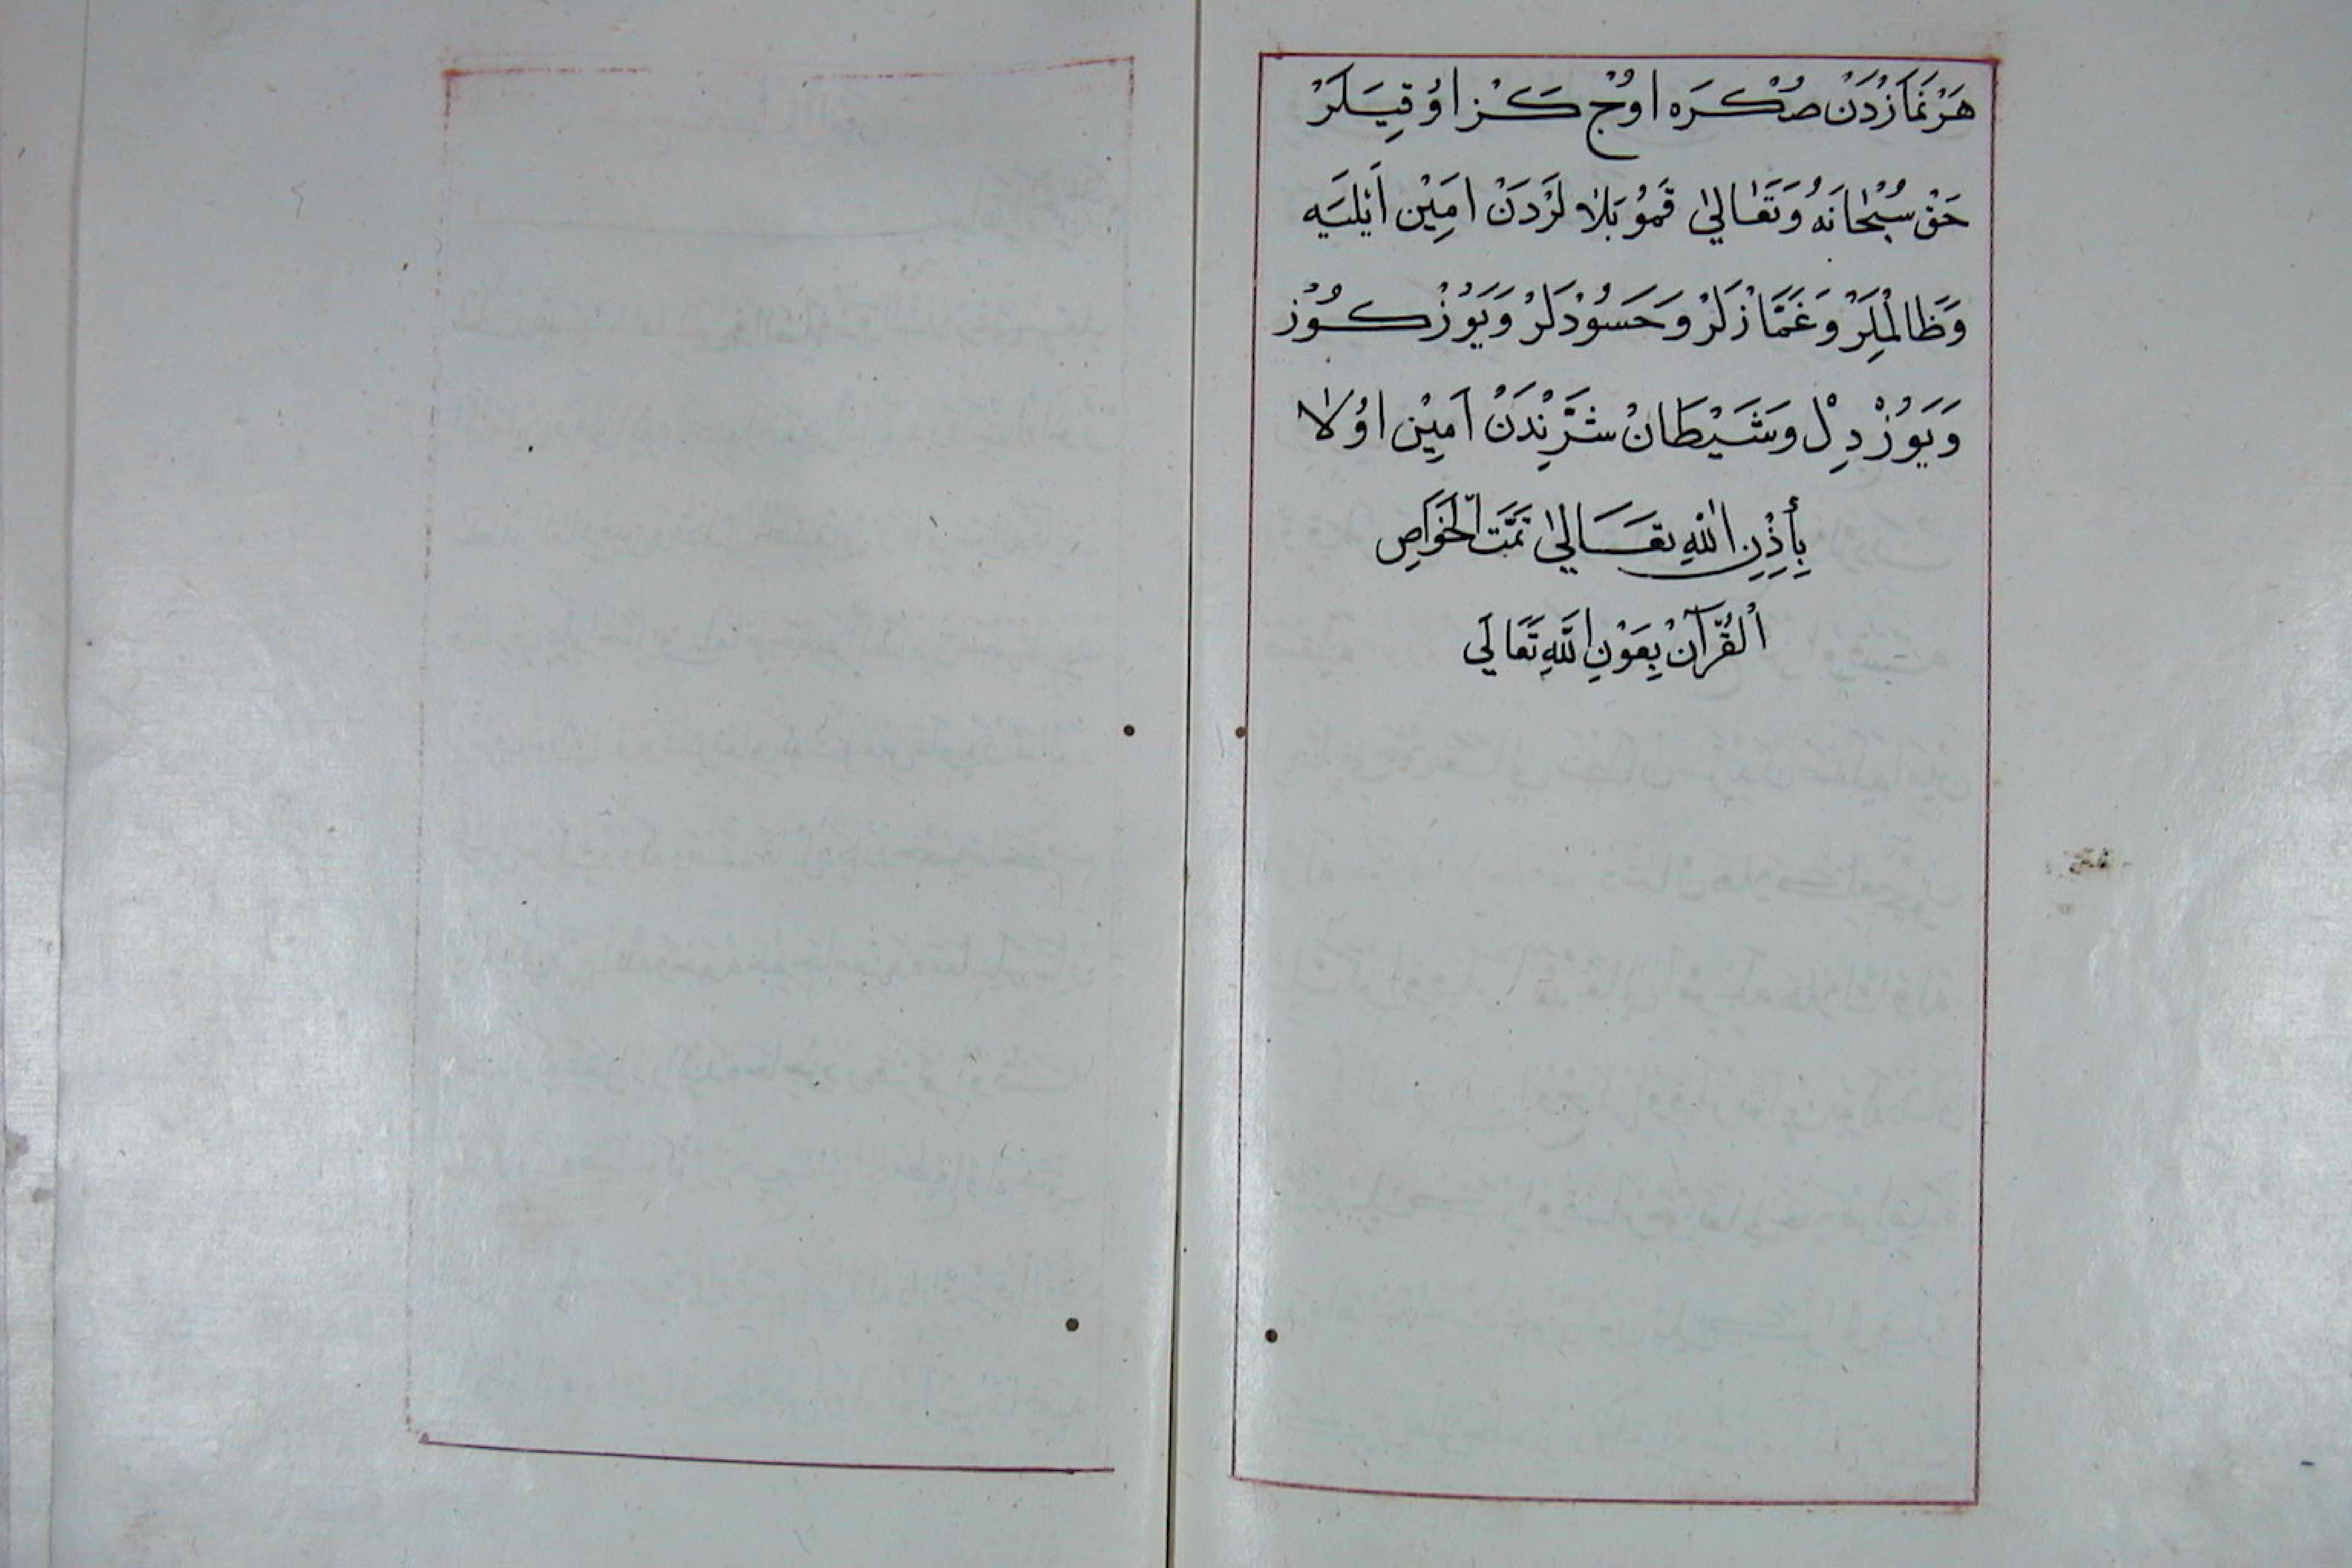 هَرْ نَمَازْدَنْ صُكْرَه اوُجْ كَزْ اوُقِيَلَرْ
حَقْ سُبْحَانَهُ وَتَعَالىٰ قَمُو بَلاٰلَرْدَنْ اَمِيْن اَيْليَه
وَظَالِمْلَرْ وَغَمَّازْلَرْ وَحَسُودْلَرْ وَيَوُزْ كُوز
وَيَوُزْ دِلْ وَشَيْطَانْ شَرِّنْدَنْ اَمِيْن اوُلاٰ
بِأِذْنِ اللّٰهِ تعَالىٰ تَمَّتْ الْخَوَاصِ
اَلْقُرْآنْ بِعَوْنِ اللَّهِ تَعَالَي